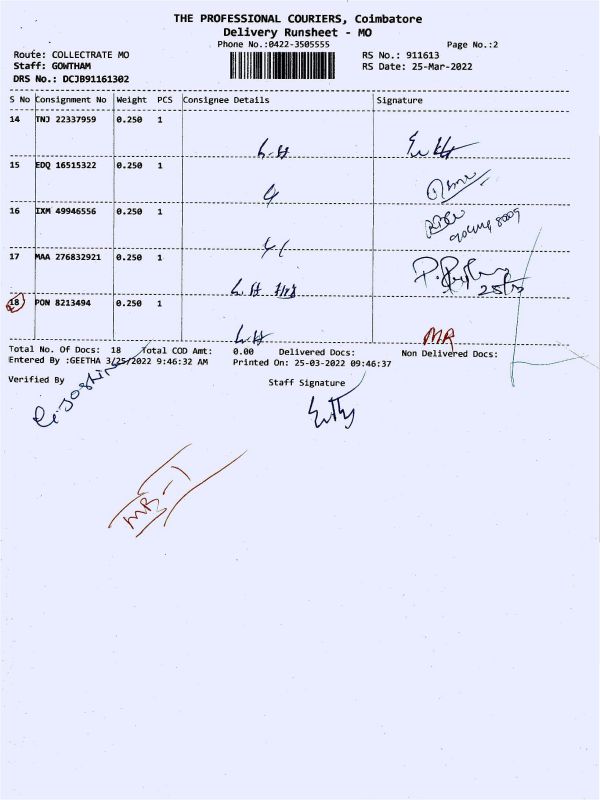 THE PROFESSIONAL COURIERS, Coimbatore
Delivery Runsheet - MO
Phone No.:0422-3505555 Page No.:2
Route: COLLECTRATE MO RS No.: 911613
Staff: GOWTHAM RS Date: 25-Mar-2022
DRS No.: DCJB91161302
S No Consignment No Weight PCS Consignee Details Signature
14 TNJ 22337959 0.250 1
15 EDQ 16515322 0.250 1
16 IXM 49946556 0.250 1
17 MAA 276832921 0.250 1
18 PON 8213494 0.250 1
MR
Total No. Of Docs: 18 Total COD Amt: 0.00 Delivered Docs: Non Delivered Docs:
Entered By :GEETHA 3/25/2022 9:46:32 AM Printed On: 25-03-2022 09:46:37
Verified By Staff Signature
MR-1